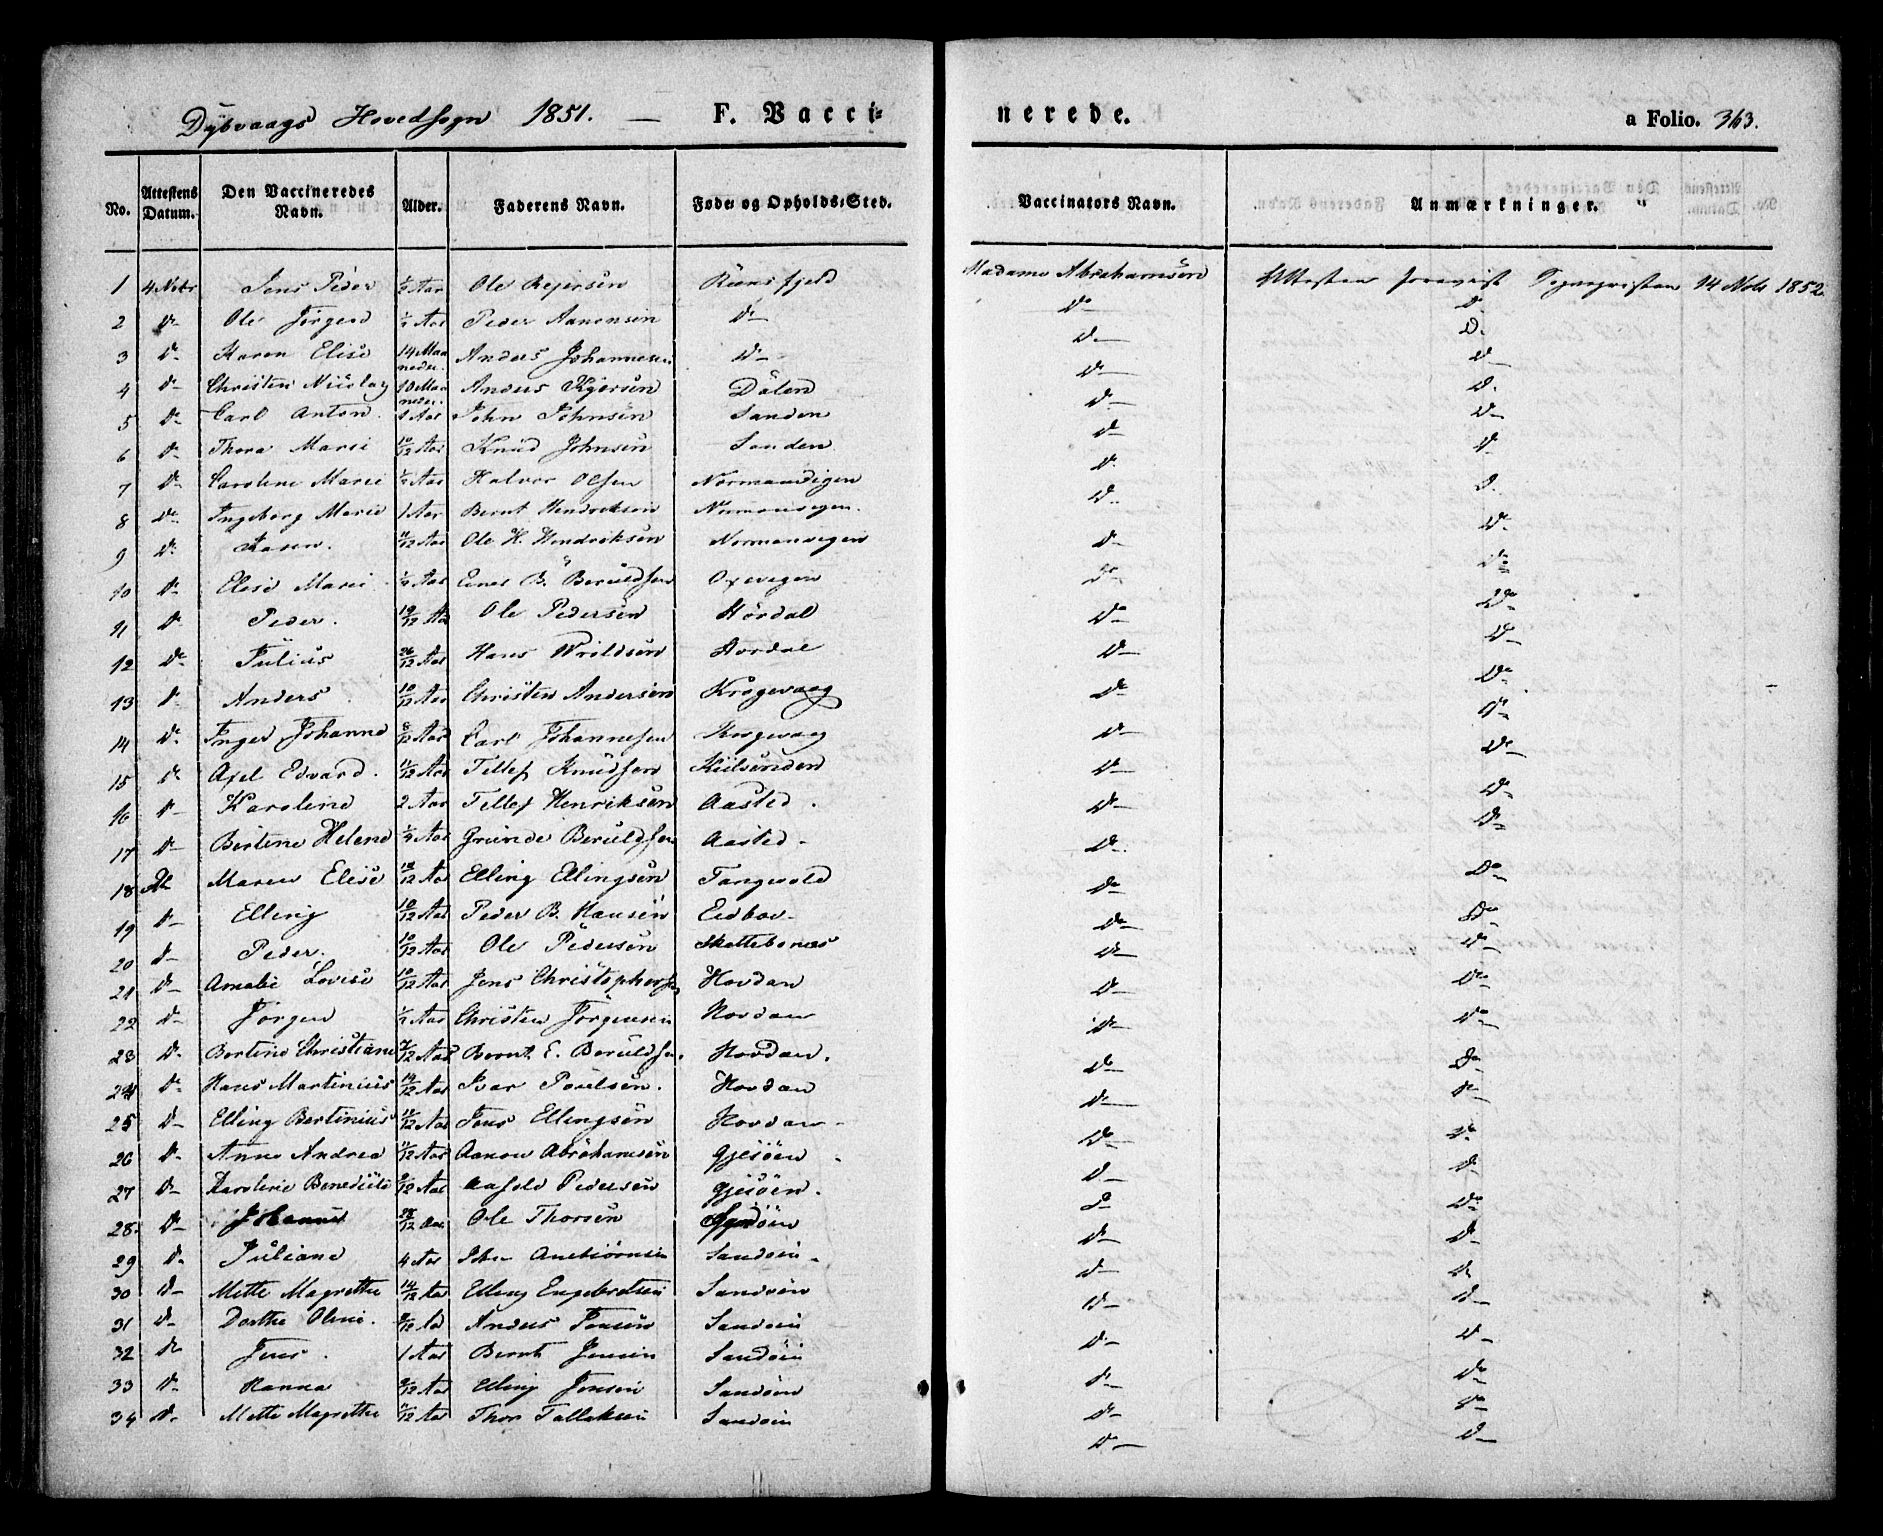 Dybvaags Hovedsogn 1851. — F. Vacci= nerede. a Folio. 363.
No. Attestens Datum. Den Vaccineredes Navn. Alder. Faderens Navn. Føde- og Opholds-Sted. Vaccinators Navn. Anmærkninger.
1 4 Nobr Jens Peder 1/2 Aar Ole Rejersen Madame Abrahamsen Attesten 14 Nobr 1852.
2 Do Ole Jørgen 1/2 Aar Peder Aanensen Do Do Do
3 Do Karen Elise 14 Maaneder. Anders Johannesen Do Do Do
4 Do Christen Nicolay 10 Maaneder. Anders Dalen Do Do
5 Do Carl Anton. 1 Aar John Johnsen Sanden Do Do
6 Do Thora Marie 10/12 Aar Knud Johnsen Sanden Do Do
7 Do Caroline Marie 1/2 Aar Halvor Olsen Normandvigen Do Do
8 Do Ingeborg Marie 1 Aar Bernt Hendriksen Normanvigen. Do Do
9 Do 11/12 Aar Ole H. Hendriksen Normanvigen Do Do
10 Do Elise Marie 1/2 Aar B. Beruldsen Oxevigen Do Do
11 Do Peder. 19/12 Aar Ole Pedersen Hordal Do Do
12 Do Julius 26/12 Aar Hans Hordal Do Do
13 Do Anders 10/12 Aar Christen Andersen Krogevaag Do Do
14 Do Inger Johanne 8/12 Aar Carl Johannesen Krogevaag Do Do
15 Do Axel Edvard. 11/12 Aar Tellef Knudsen Kiilsunden Do Do
16 Do Karoline 2 Aar Tellef Henriksen Aasted. Do Do
17 Do Bertine Helene 1/2 Aar Grunde Beruldsen Aasted Do Do
18 Do Maren Elise 18/12 Aar Elling Ellingsen Tangvold Do Do
19 Do Elling 10/12 Aar Peder B. Hansen Eidbo Do Do
20 Do Peder. 10/12 Aar Ole Pedersen Skottebonæs Do Do
21 Do Amalie Lovise 10/12 Aar Jens Christophersen Hovdan Do Do
22 Do Jørgen 1/2 Aar Christen Jørgensen Hovdan Do Do
23 Do Bertine Christiane 7/12 Aar Bernt E. Beruldsen. Hovdan. Do Do
24 Do Hans Martinius 14/12 Aar Ivar Poulsen. Hovdan Do Do
25 Do Elling Bertinius 11/12 Aar Jens Ellingsen Hovdan Do Do
26 Do Anne Andrea 11/12 Aar Aanon Abrahamsen Gjesøen Do Do
27 Do Karoline Benedicte 9/12 Aar Pedersen Gjesøen. Do Do
28. Do Johanne 28/12 Aar Ole Thorsen Sandøen Do Do
29 Do Juliane 4 Aar Sandøen Do Do
30 Do Mette Magrethe 14/12 Aar Elling Engebretsen Sandøen Do Do
31 Do Dorthe Oline. 8/12 Aar Anders Jensen Sandøen Do Do
32 Do Jens. 1 Aar Bernt Jensen Sandøen Do Do
33 Do Hanna 9/12 Aar Elling Jensen Sandøen Do Do
34 Do Mette Magrethe 7/12 Aar Thor Tallaksen Sandøen Do Do